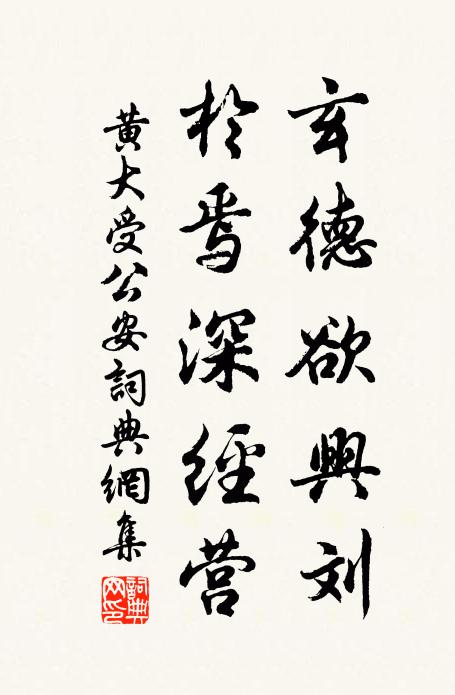 玄德欲興刘
於焉深經营
黄大受公安詞典網集
詞典网印